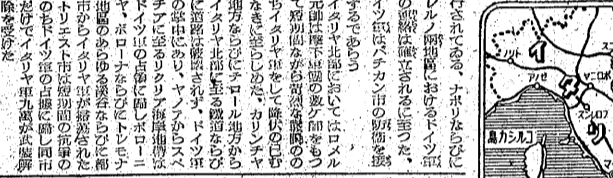 行されてゐる、ナポリならびに
レルノ兩地區におけるドイツ軍
の連絡は確立されるに至つた、
イツ軍はベチカン市の防衞を援
するであらう
イタリヤ北部においてはロメル
元帥は麾下軍團の數ケ師をもつ
て短期間ながら苛烈な戰鬪のの
ちイタリヤ軍をして降伏の已む
なきに至らしめた、カリンチヤ
地方ならびにチロール地方から
イタリヤ北部に至る鐵道ならび
に道路は確保され、ドイツ軍
の掌中にあり、サヴノアからスペ
チアに至るリグリア海岸地帶は
ドイツ軍の占據に歸しボローニ
ヤ、ボローナならびにトレモナ
地區のあらゆる溪谷ならびに都
市からイタリヤ軍が掃蕩された
トリエスト市は短期間の抗爭の
のちドイツ軍の占據に歸し同市
だけでイタリヤ軍九萬が武裝解
除を受けた
イタリ
ゼノア
コルシカ島